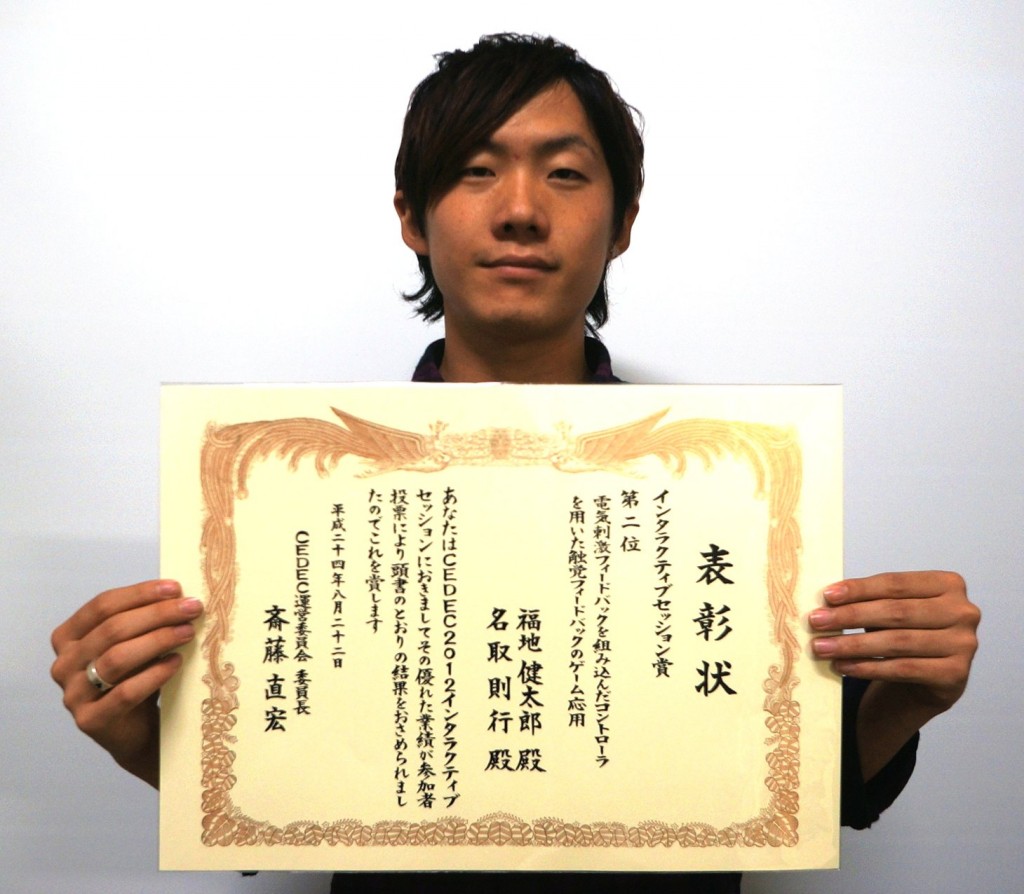 表彰状
インタラクティブセッション賞
第二位
電気刺激フィードバックを組み込んだコントローラ
を用いた触覚フィードバックのゲーム応用
福地健太郎 殿
名取則行 殿
あなたはCEDEC2012インタラクティブ
セッションにおきましてその優れた業績が参加者
投票により頭書のとおりの結果をおさめられまし
たのでこれを賞します
平成二十四年八月二十二日
CEDEC運営委員会 委員長
斎藤直宏